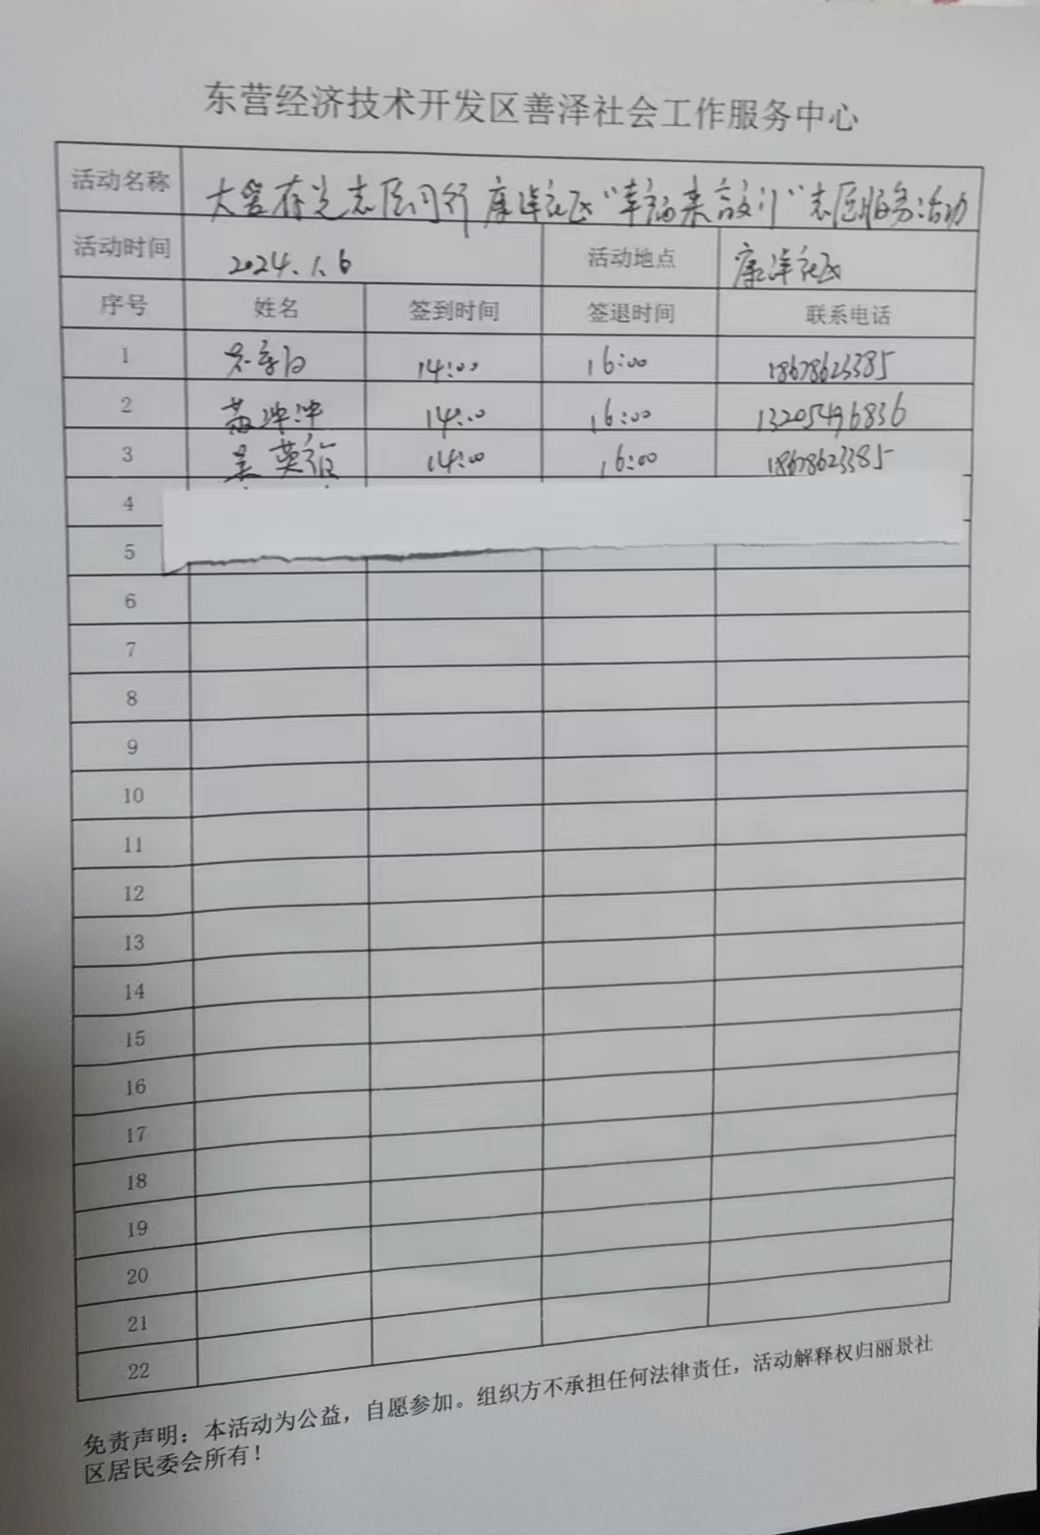 东营经济技术开发区善泽社会工作服务中心
活动名称 康洋社区“幸福来敲门”志愿服务活动
活动时间 2024.1.6 活动地点 康洋社区
序号 姓名 签到时间 签退时间 联系电话
1 14:00 16:00 18678623385
2 黄冲冲 14:00 16:00 13205496836
3 吴英 14:00 16:00 18678623385
4
5
6
7
8
9
10
11
12
13
14
15
16
17
18
19
20
21
22
免责声明：本活动为公益，自愿参加。组织方不承担任何法律责任，活动解释权归丽景社
区居民委会所有！